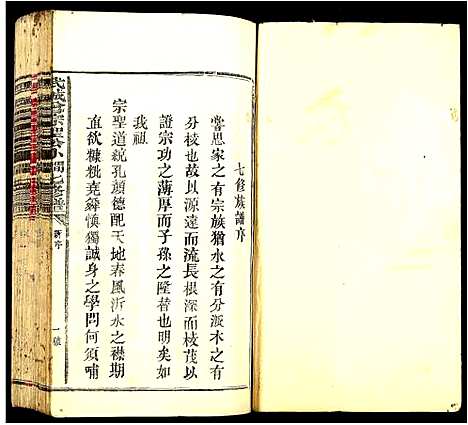 七修族譜序
嘗思家之有宗族猶水之有分派木之有
分枝也故以源遠而流長根深而枝茂以
證宗功之薄厚而子孫之隆替也明矣如
我祖
宗聖道統孔顏德配天地春風沂水之襟期
直欲糠粃堯舜慎獨誠身之學問何須哺
武城曾
七修譜
新序
一